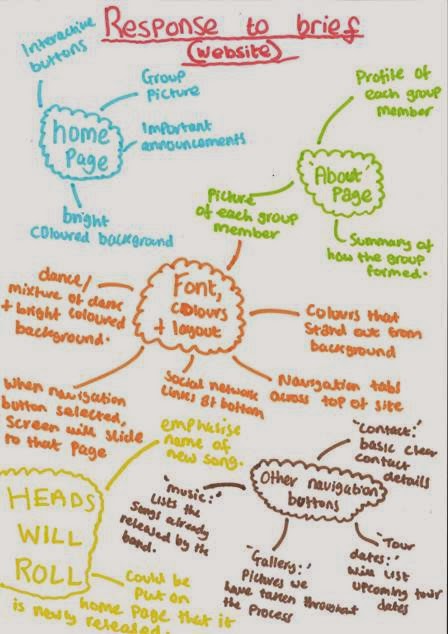 Response to brief
(website)
Interactive
buttons
Group
Picture
Important
announcements
home
Page
bright
coloured background
Profile of
each group
member
'About'
Page
Picture
of each group
member
Summary of
how the group
formed.
Font,
colours
+ layout
dance/
mixture of dark
+ bright coloured
background.
Colours that
Stand out from
background
When navigation
button selected,
Screen will slide
to that page
Social network
links at bottom
Navigation tabs
across top of site
emphasise
name of
new song.
HEADS
WILL
ROLL
Could be
Put on
home page that it
is newly released.
Other navigation
buttons
'contact:'
basic clear
contact
details
'music:'
Lists the
Songs already
released by the
band.
'Gallery:'
Pictures we
have taken throughout
the Process
'Tour
dates:'
Will list
upcoming tour
dates